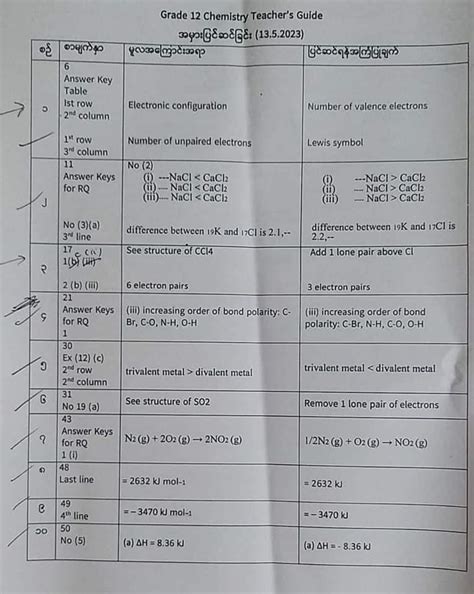 Grade 12 Chemistry Teacher's Guide
အမှားပြင်ဆင်ခြင်း (13.5.2023)
စဉ် စာမျက်နှာ မူလအကြောင်းအရာ ပြင်ဆင်ရန်အကြံပြုချက်
၁
6
Answer Key
Table
Ist row
2nd column
Electronic configuration
Number of valence electrons
1st row
3rd column
Number of unpaired electrons
Lewis symbol
၂
11
Answer Keys
for RQ
No (2)
(i) ---NaCl < CaCl2
(ii)— NaCl < CaCl2
(iii)— NaCl < CaCl2
(i) ---NaCl > CaCl2
(ii) — NaCl > CaCl2
(iii) — NaCl > CaCl2
No (3)(a)
3rd line
difference between 19K and 17Cl is 2.1,--
difference between 19K and 17Cl is
2.2,--
၃
17
1(b) (iii)
c (ii)
See structure of CCl4
Add 1 lone pair above Cl
2 (b) (iii)
6 electron pairs
3 electron pairs
၄
21
Answer Keys
for RQ
1
(iii) increasing order of bond polarity: C-
Br, C-O, N-H, O-H
(iii) increasing order of bond
polarity: C-Br, N-H, C-O, O-H
၅
30
Ex (12) (c)
2nd row
2nd column
trivalent metal > divalent metal
trivalent metal < divalent metal
၆
31
No 19 (a)
See structure of SO2
Remove 1 lone pair of electrons
၇
43
Answer Keys
for RQ
1 (i)
N2 (g) + 2O2 (g) → 2NO2 (g)
1/2N2 (g) + O2 (g) → NO2 (g)
၈
48
Last line
= 2632 kJ mol-1
= 2632 kJ
၉
49
4th line
= – 3470 kJ mol-1
= – 3470 kJ
၁၀
50
No (5)
(a) ΔH = 8.36 kJ
(a) ΔH = - 8.36 kJ